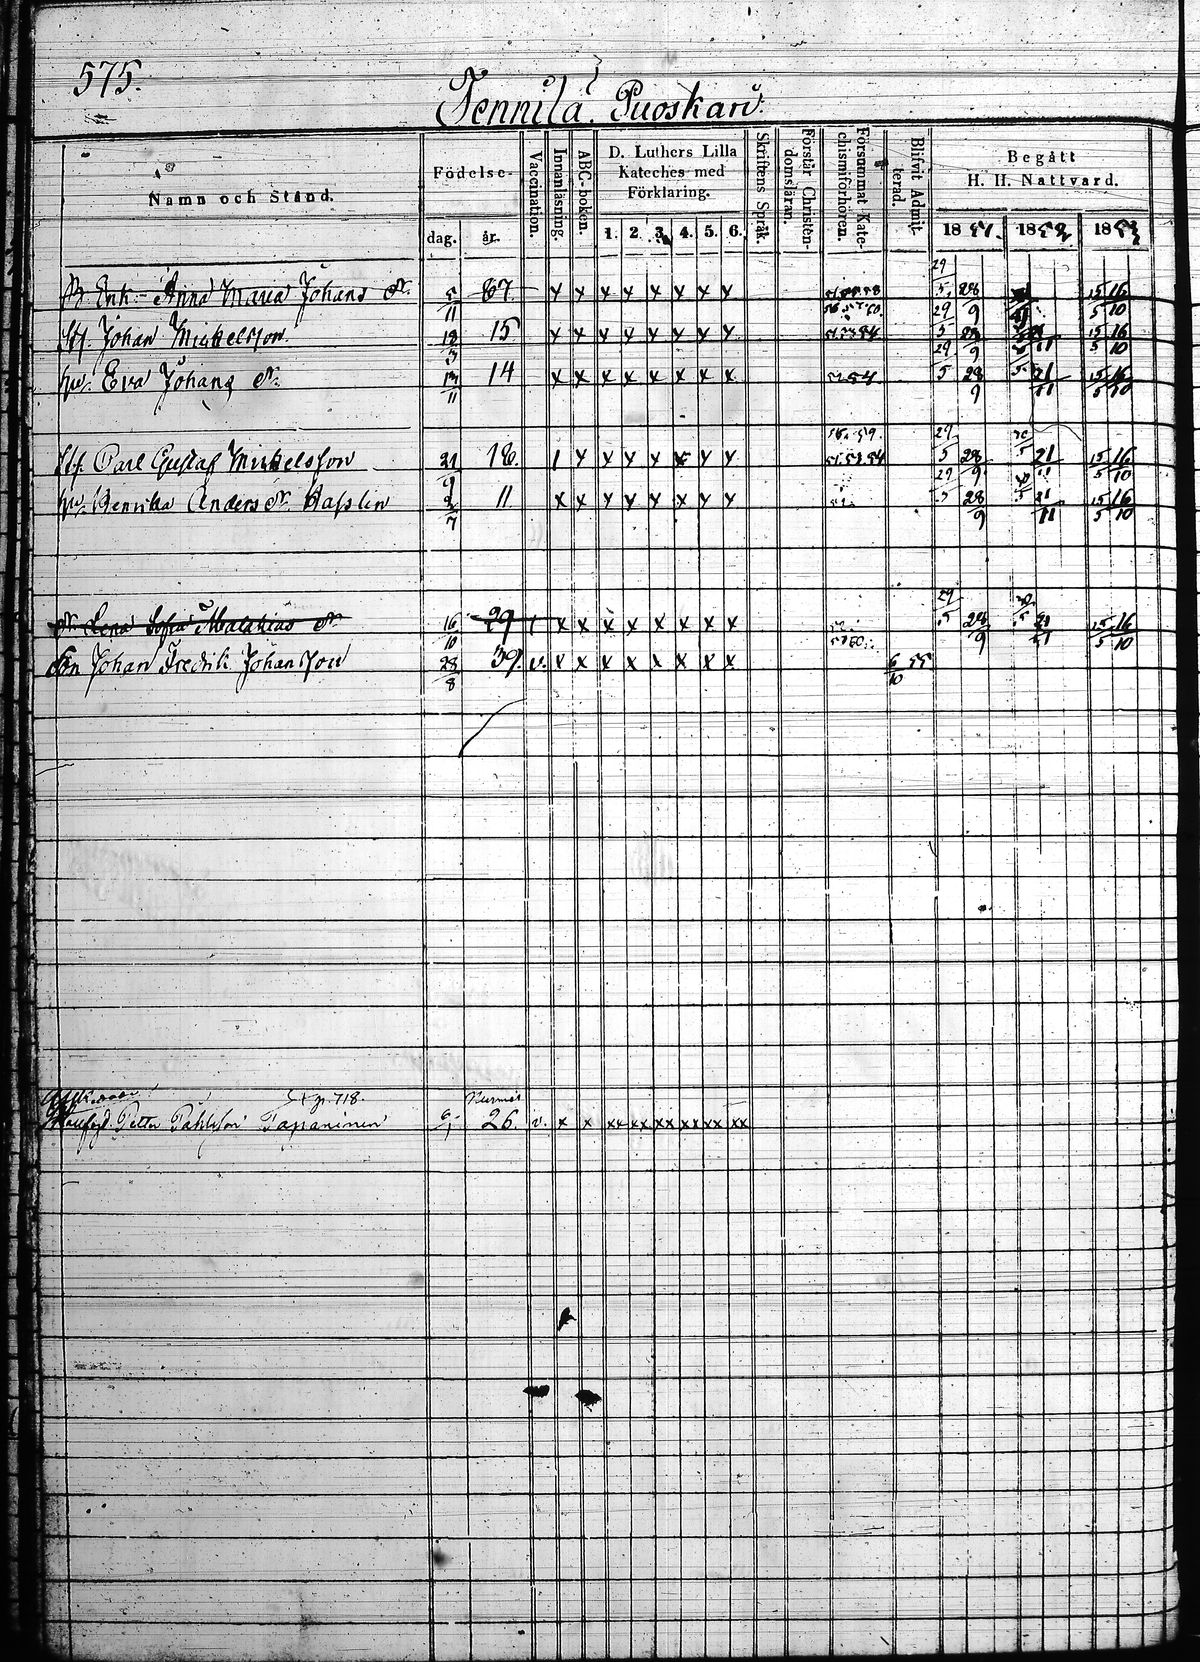 575.
Tennilä. Puoskari.
Namn och Stånd.
Födelse-
dag. år.
Vaccination.
Innanläsning.
ABC-boken.
D. Luthers Lilla
Kateches med
Förklaring.
1. 2 3. 4. 5. 6.
Skriftens Språk.
Förstår Christen-
domsläran.
Försummat Kate-
chismiförhören.
Blifvit Admit
terad.
Begått
H. H. Nattvard.
18 51. 18 52 18 53
Enk. Anna Maria Johans dr. 5/11 67 x x x x x x x x 29/5 28/9 15/5 16/10
Johan Mickelsson 18/3 15 x x x x x x x x 29/5 28/9 21/11 15/5 16/10
hu. Eva Johans dr. 13/11 14 x x x x x x x x 54 29/5 28/9 21/11 15/5 16/10
Carl Gustaf Mickelsson 21/9 18. x x x x x x x 29/5 28/9 21/11 15/5 16/10
hu. Henrika Anders dr. 11 x x x x x x x x 29/5 28/9 21/11 15/5 16/10
dr. Lena Sofia Mathias dr 16/10 29 x x x x x x x x 29/5 28/9 21/11 15/5 16/10
Son Johan Fredrik Johansson 28/8 39. v. x x x x x x x x 6/10 55
p. 718. Nurmis
Petter Påhlsson Tapaninen 26. v. x x xx xx xx xx xx xx